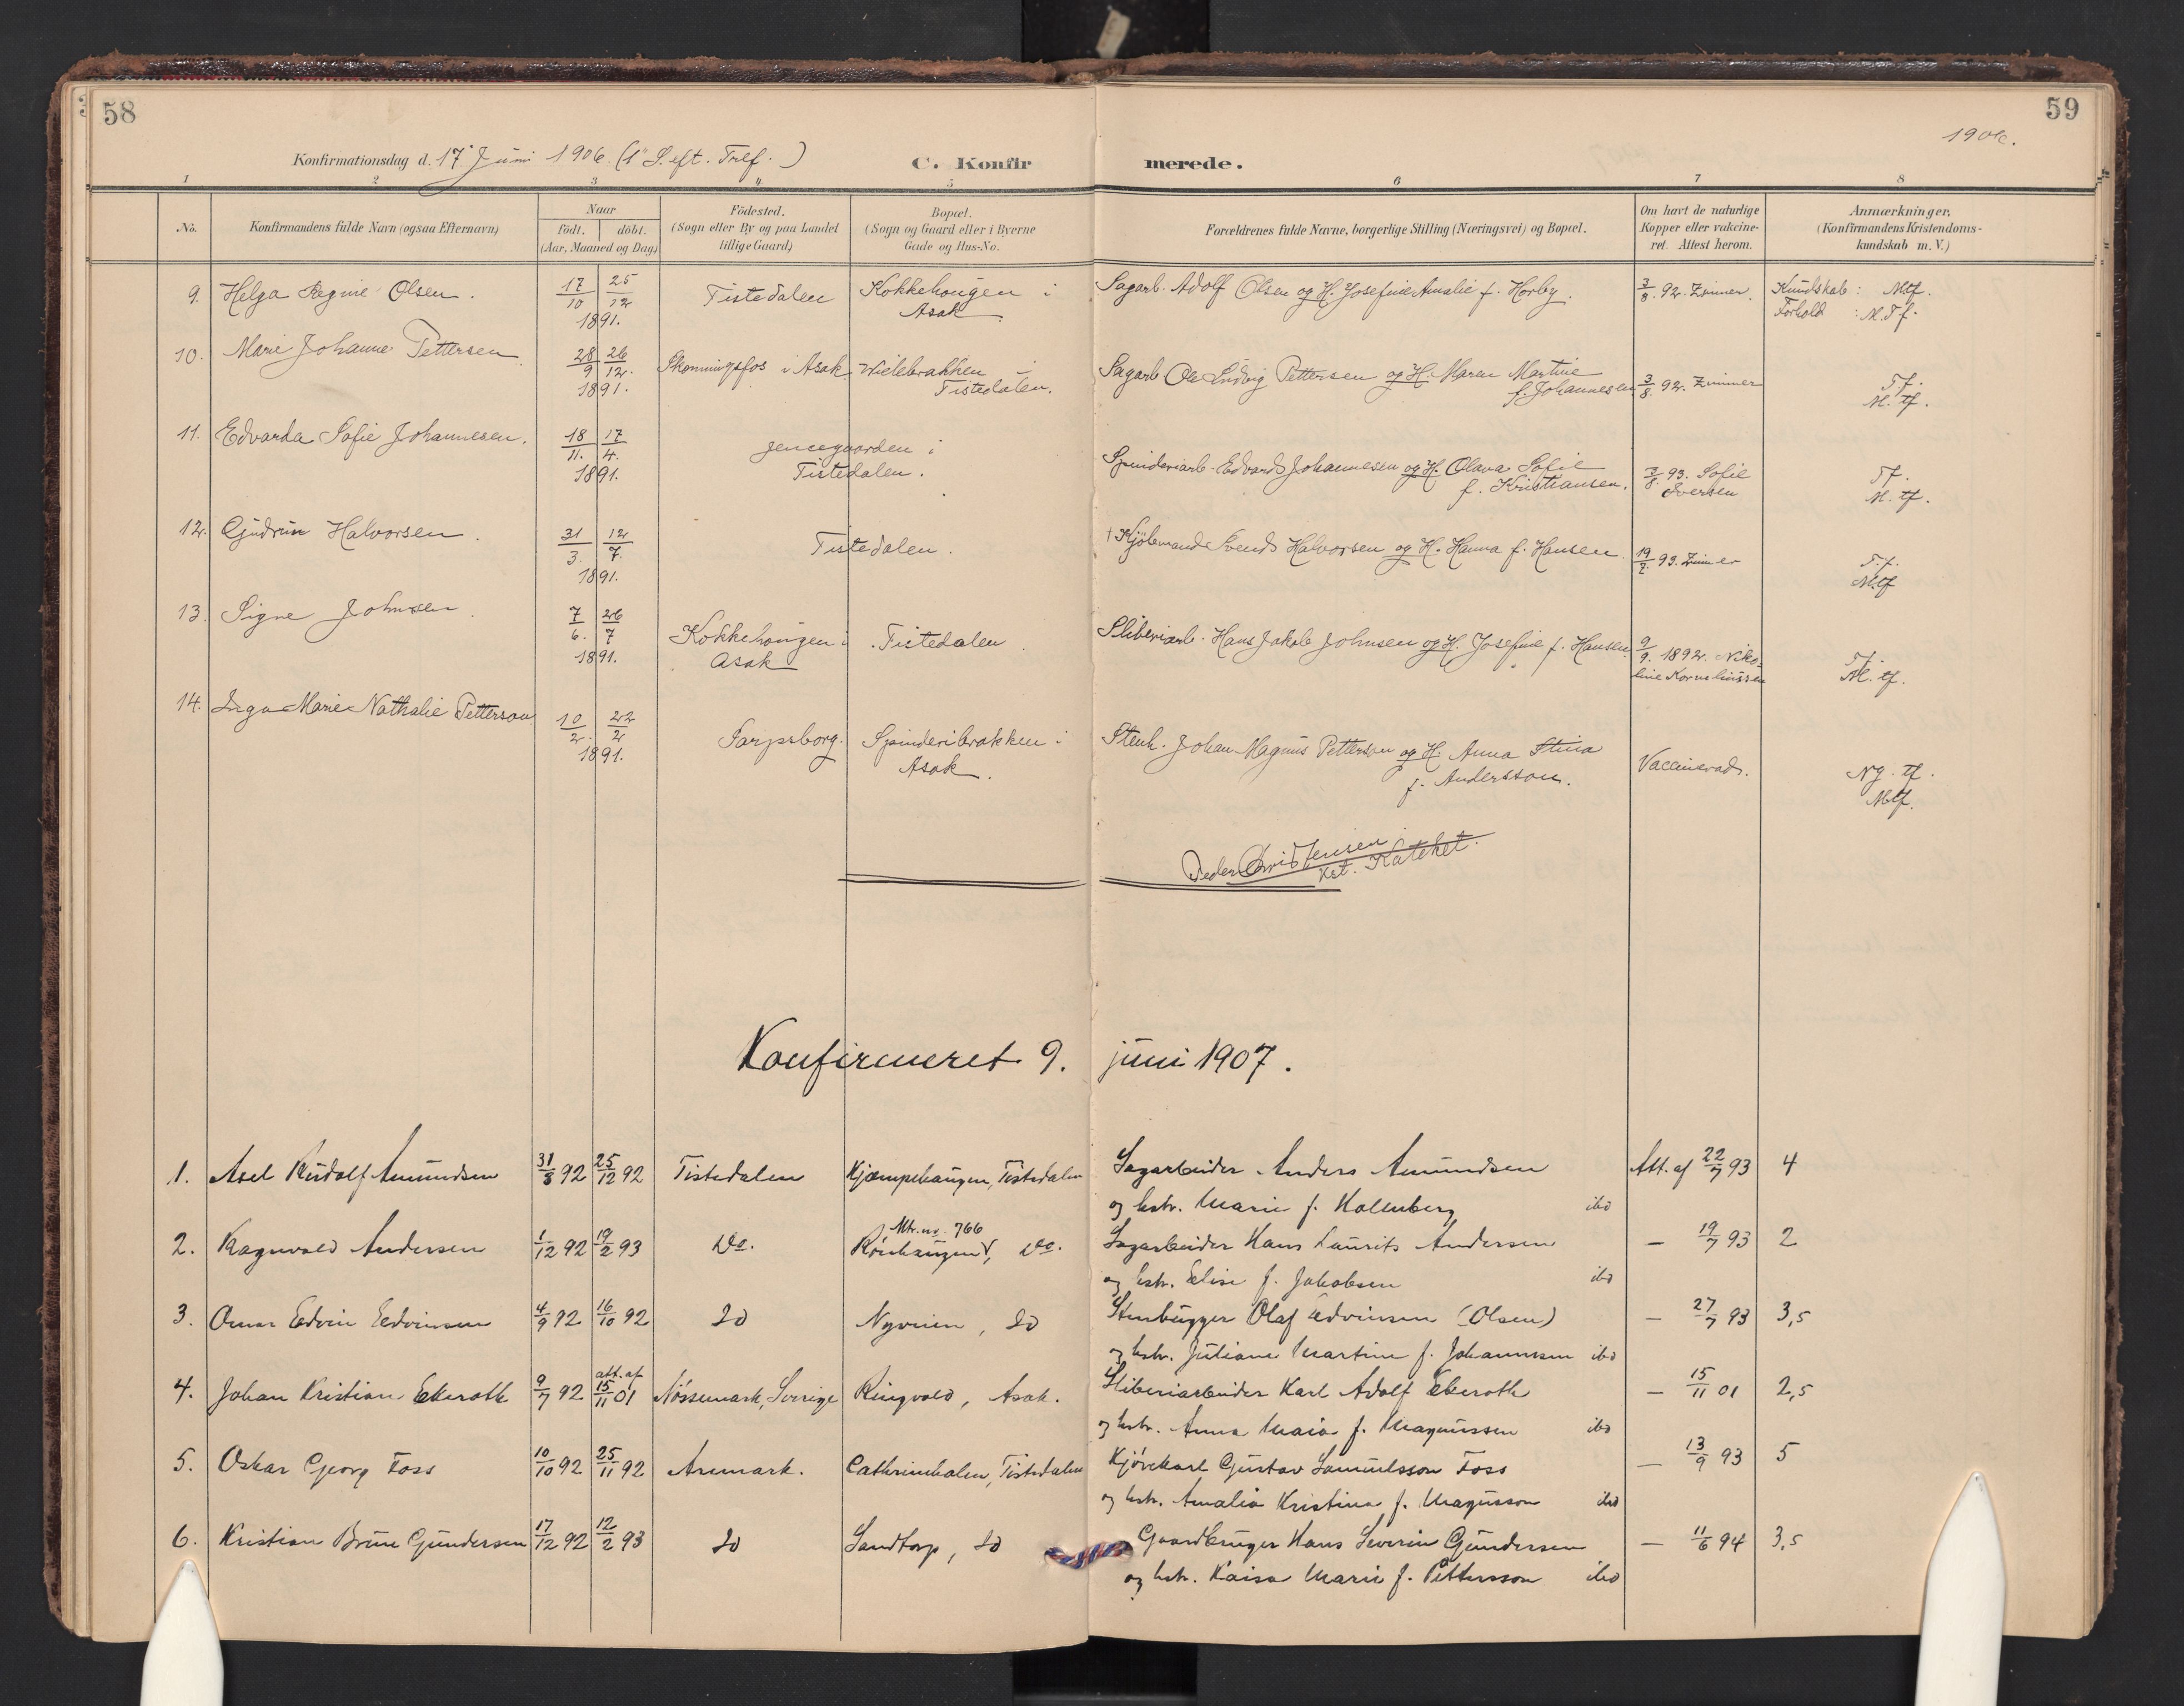 58
59
1906.
Konfirmationsdag d. 17' Juni 1906. (1' S. eft. Tref.)
C. Konfir merede.
1 2 3 4 5 6 7 8
No. Konfirmandens fulde Navn (ogsaa Efternavn) Naar födt. döbt. (Aar, Maaned og Dag) Födested. (Sogn eller By og paa Landet tillige Gaard) Bopæl. (Sogn og Gaard eller i Byerne Gade og Hus-No. Forældrenes fulde Navne, borgerlige Stilling (Næringsvei) og Bopæl. Om havt de naturlige Kopper eller vakcineret. Attest herom. Anmærkninger, (Konfirmandens Kristendomskundskab m. V.)
9. Helga Regine Olsen. 17/10 25/12 1891. Tistedalen Kokkehougen i Asak Sagarb. Adolf Olsen og H. Josefine Amalie f. Horby. 3/8. 92. Zimmer. Kundskab: Mtf.
Forhold: M.T.f.
10. Marie Johanne Pettersen 28/9 26/12. 1891. Skonningsfos i Asak Wielebrakken i Tistedalen. Sagarb. Ole Ludvig Pettersen og H. Maren Martine f. Johannesen 3/8. 92. Zimmer T.f.
M. tf.
11. Edvarda Sofie Johannesen. 18/11. 17/4. 1891. Jensegaarden i Tistedalen. Spinderiarb. Edvard Johannesen og H. Olava Sofie f. Kristiansen. 3/8. 93. Sofie Iversen Tf.
M. tf.
12. Gudrun Halvorsen. 31/3. 12/7. 1891. Tistedalen. † Kjöbmand Svend Halvorsen og H. Hanna f. Hansen 19/7. 93. Zimmer T.f.
M.tf
13. Signe Johnsen. 7/6. 26/7 1891. Kokkehougen i Asak Tistedalen. Sliberiarb. Hans Jakob Johnsen og H. Josefine f. Hansen 9/9. 1892. Nikoline Korneliussen Tf.
M. tf.
14. Inga Marie Nathalie Petterson 10/2. 22/2 1891. Sarpsborg. Spinderibrakken i Asak. Stenh. Johan Magnus Petterson og H. Anna Stina f. Andersson. Vaccinerad. Ng. tf.
Mtf.
Peder Christensen
Kst. Kateket.
Konfirmeret 9. juni 1907.
1. Axel Rudolf Amundsen 31/8 92 25/12 92 Tistedalen Kjæmpehaugen, Tistedalen Sagarbeider Anders Amundsen Att. af 22/7 93 4
og hstr. Marie f. Hollenberg ibd
2. Ragnvald Andersen 1/12 92 19/2 93 Do. Mtr. no. 766 Rönhaugen, Do. Sagarbeider Hans Laurits Andersen — 19/7 93 2
og hstr. Elise f. Jakobsen ibd
3. Omar Edvin Edvinsen 4/9 92 16/10 92 Do Nyveien, Do Stenhugger Olaf Edvinsen (Olsen) — 27/7 93 3,5
og hstr. Juliane Martine f. Johannesen ibd
4. Johan Kristian Ekeroth 9/7 92 att. af 15/11 01 Nössemark, Sverige Ringvold, Asak. Sliberiarbeider Karl Adolf Ekeroth — 15/11 01 2,5
og hstr. Anna Maia f. Magnussen ibd
5. Oskar Georg Foss 10/10 92 25/11 92 Aremark. Cathrineholm, Tistedalen Kjörekarl Gustav Samuelsson Foss — 13/9 93 5
og hstr. Amalia Kristina f. Magnusson ibd
6. Kristian Brune Gundersen 17/12 92 12/2 93 Do Sandtorp, Do Gaardbruger Hans Severin Gundersen — 11/6 94 3,5
og hstr. Kaisa Marie f. Pettersson ibd